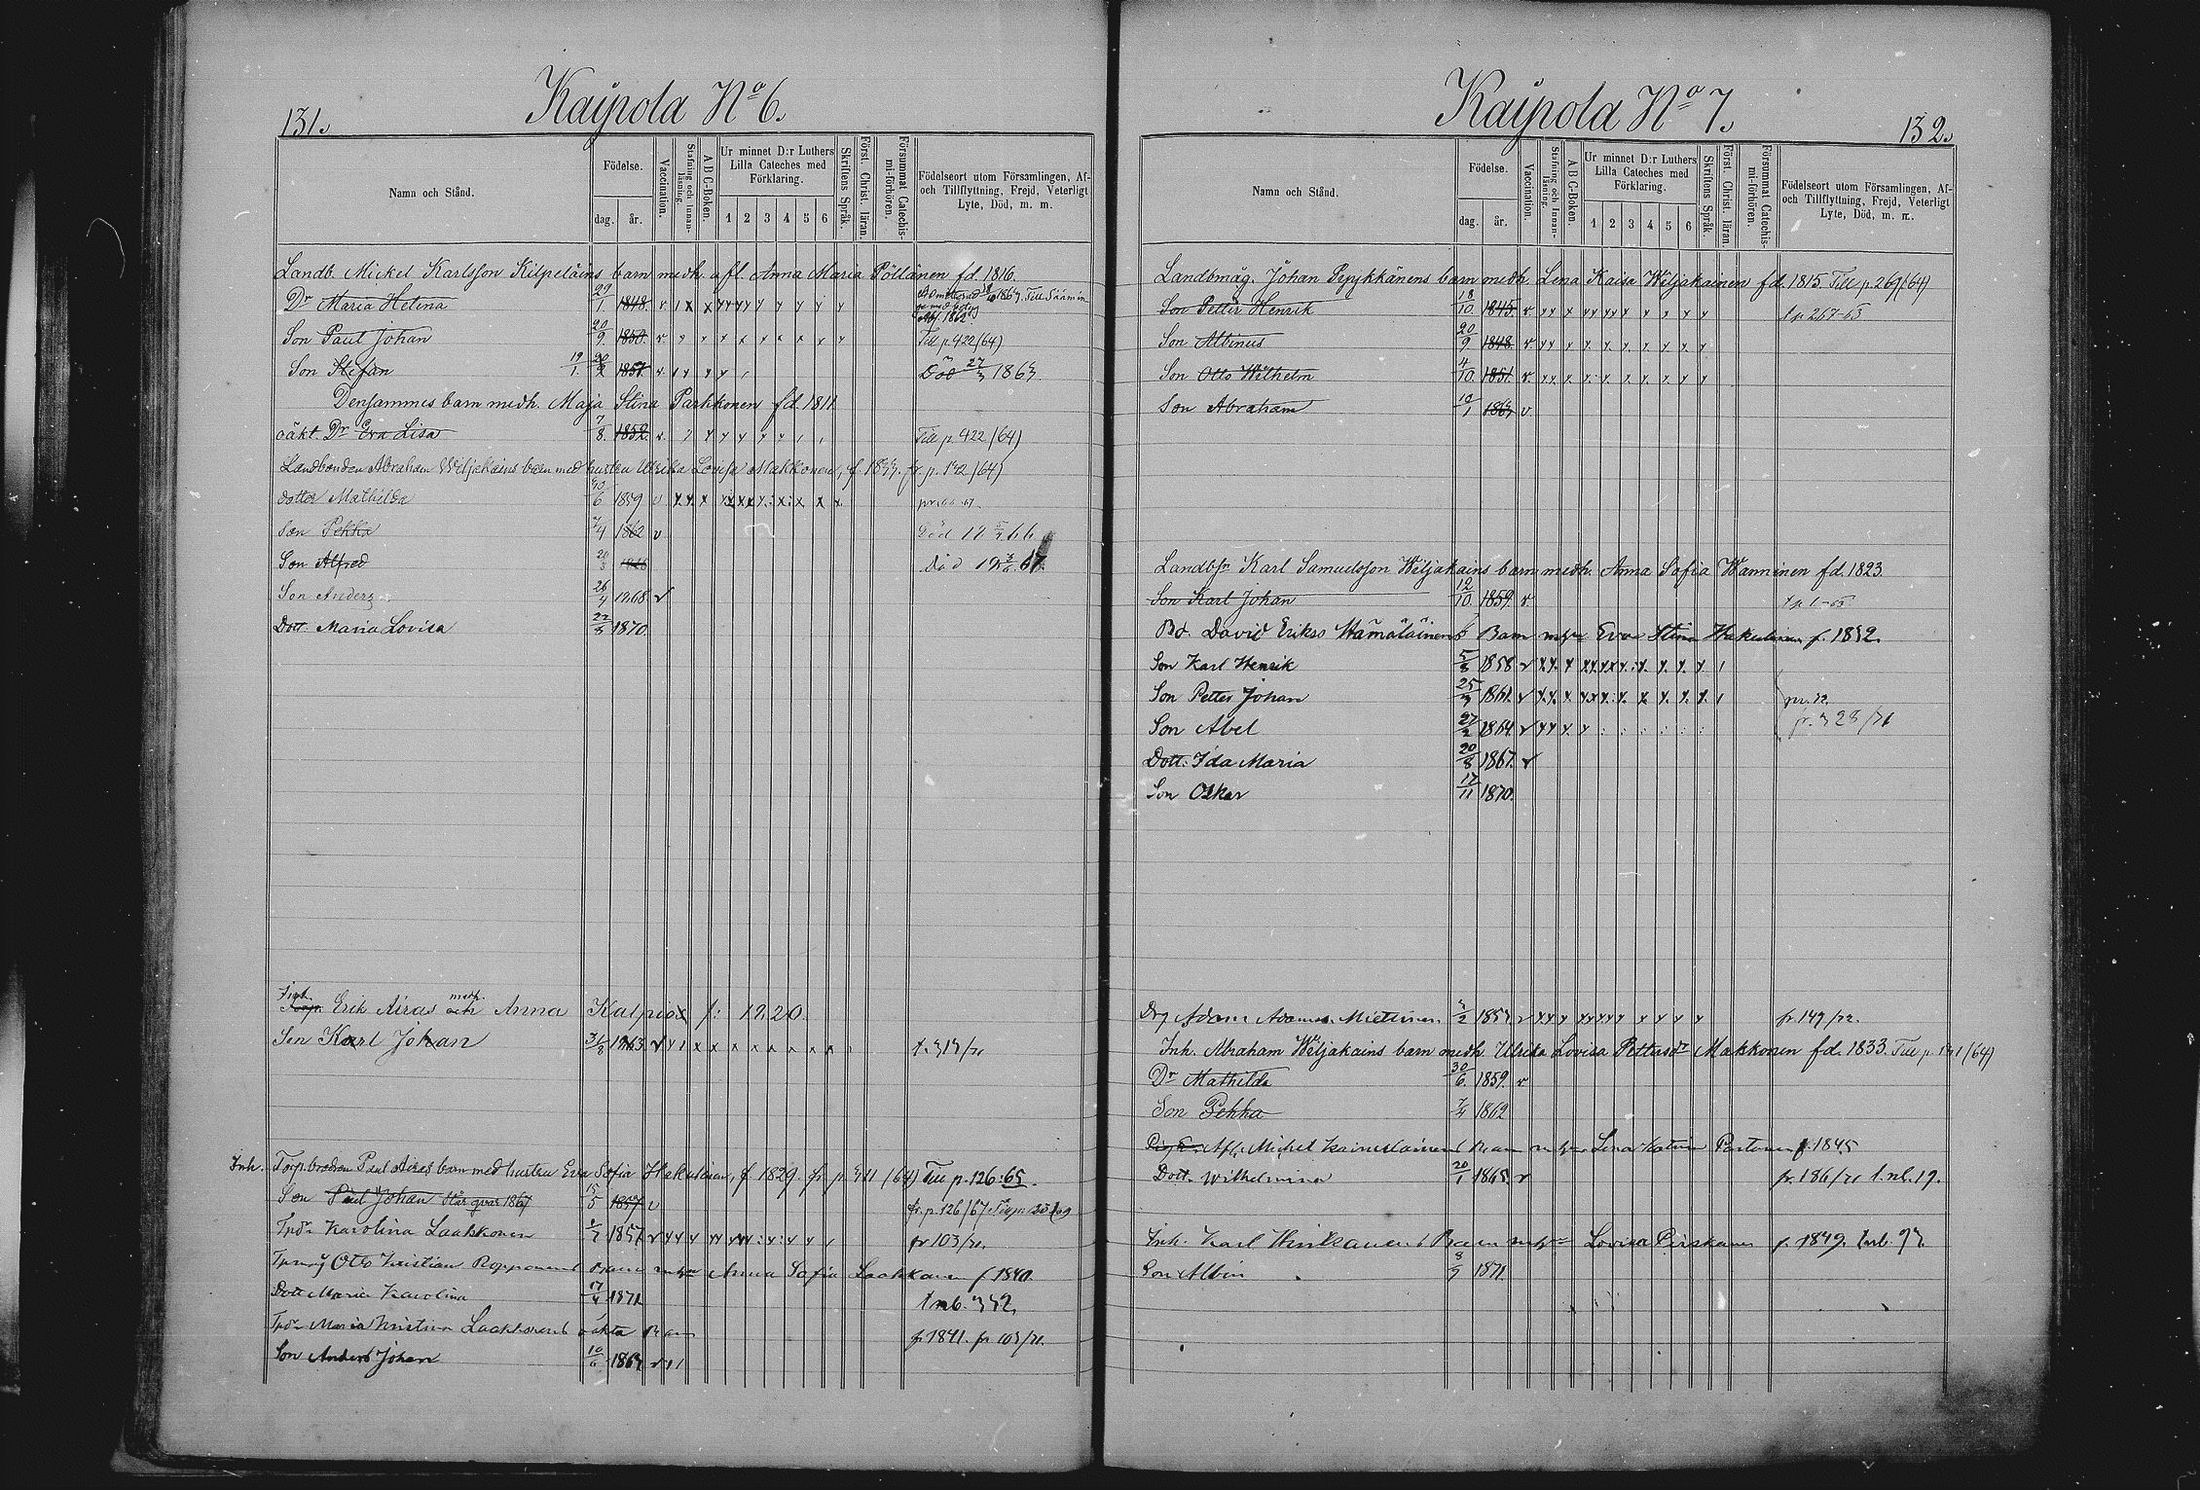 131.
Kaipola No 6.
Namn och Stånd.
Födelse.
dag. år.
Vaccination.
Stafning och Innanläsning.
A B C-Boken.
Ur minnet D:r Luthers Lilla Cateches med Förklaring.
1 2 3 4 5 6
Skriftens Språk.
Först. Christ. läran.
Försummat Catechismi-förhören.
Födelseort utom Församlingen, Af- och Tillflyttning, Frejd, Veterligt Lyte, Död, m. m.
Landb. Mickel Karlsson Kilpeläins barn medh. afl. Anna Maria Pöllänen fd. 1816.
Dr Maria Helena 29/1. 1848. v
Son Paul Johan 20/9. 1850. v Till p 422/64)
Son Stefan 19/1. 1857. v Död 27/3 1863
Densammes barn medh. Maja Stina Parkkonen fd. 1811
oäkt. Dr Eva Lisa 7/8. 1852. v Till p. 422/64)
Landbonden Abraham Wiljakains barn med hustru Ulrika Lovisa Makkonen, f. 1833. fr. p. 132/64)
dotter Mathilda 30/6 1859 v
Son Pekka 7/4 1862 v Död
Son Alfred 20/3 Död
Son Anders 26/4 1868 v
Dott. Maria Lovisa 22/8 1870.
Erik Airas medh. Anna Kalpio f: 1820.
Son Karl Johan 1863 v
Inh. Torp.brodren Paul Airas barn med hustru Eva Sofia Hakulinen, f. 1829. fr. p. 311/64) Till p. 126:65.
Son Paul Johan Står qvar 1867 15/5 1857 v fr. p. 126/67
Tpdr Karolina Laakkonen 1857 v fr 103/71.
Tpmåg Otto Kristian Ropponens Barn m hu Anna Sofia Laakkonen f 1840.
Dott Maria Karolina 17/4 1871
Tpdr Maria Kristina Laakkonens oäkta Barn f. 1841. fr 103/71.
Son Anders Johan 10/6 1863 v
Kaipola No 7.
132.
Namn och Stånd.
Födelse.
dag. år.
Vaccination.
Stafning och Innanläsning.
A B C-Boken.
Ur minnet D:r Luthers Lilla Cateches med Förklaring.
1 2 3 4 5 6
Skriftens Språk.
Först. Christ. läran.
Försummat Catechismi-förhören.
Födelseort utom Församlingen, Af- och Tillflyttning, Frejd, Veterligt Lyte, Död, m. m.
Landbmåg. Johan Pyykkänens barn medh. Lena Kaisa Wiljakainen fd. 1815. Till p. 269/64)
Son Petter Henrik 18/10. 1845. v t p 267-65
Son Albinus 20/9 1848. v
Son Otto Wilhelm 4/10. 1851. v
Son Abraham 10/1 1863 v
Landbsn Karl Samuelsson Wiljakains barn medh. Anna Sofia Wanninen fd. 1823.
Son Karl Johan 12/10. 1859. v t p 1-65
Bd. David Erikss Hämäläinens Barn m hu Eva Stina Hakulinen f. 1832.
Son Karl Henrik 5/8 1858 v
Son Petter Johan 25/3 1861. v
Son Abel 27/2 1864. v fr. 328/71
Dott. Ida Maria 20/8 1867. v
Son Oskar 17/11 1870.
Drg Adam Adamss. Miettinen 1857 v fr 149/72.
Inh. Abraham Wiljakains barn medh. Ulrika Lovisa Pettersdr Makkonen fd. 1833. Till p. 131/64)
Dr Mathilda 30/6. 1859. v
Son Pekka 7/4 1862
f. 1845
Dott. Wilhelmina 20/1 1865. v fr. 186/71
Inh. Karl Hinkanens Barn m hu Lovisa Pirskanen f. 1849.
Son Albin 8/9 1871.